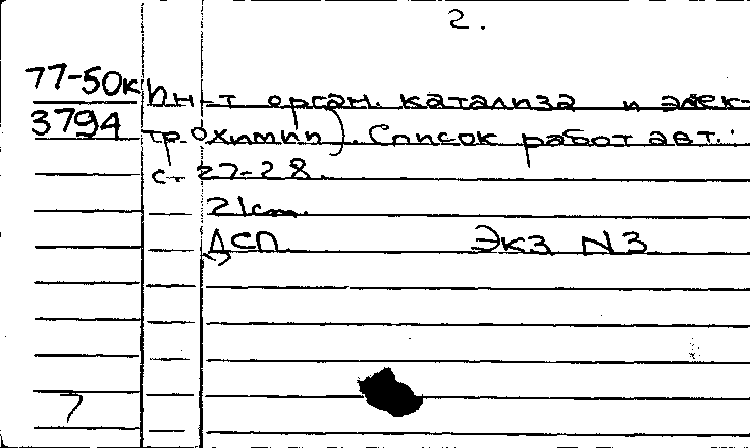 2.
77-50к Ин-т орган. катализа и элек-
3794 трохимии). Список работ авт.:
с. 27-28.
21cm.
ДСП Экз N3
7